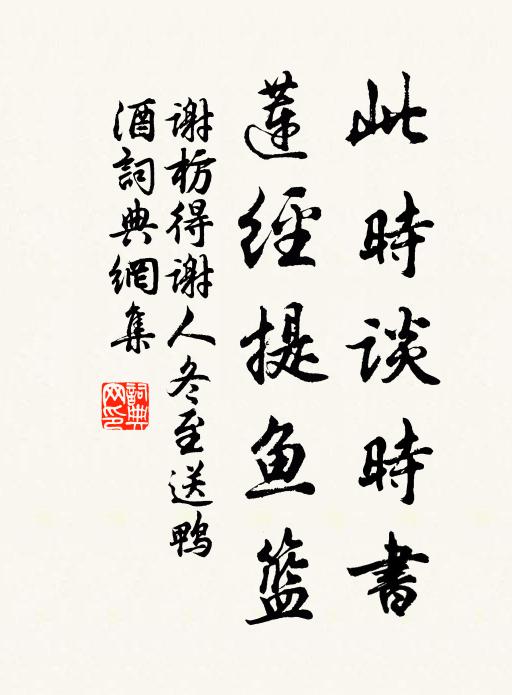 此時談時書
蓮經提魚籃
谢枋得谢人冬至送鴨
酒詞典網集
詞典網印